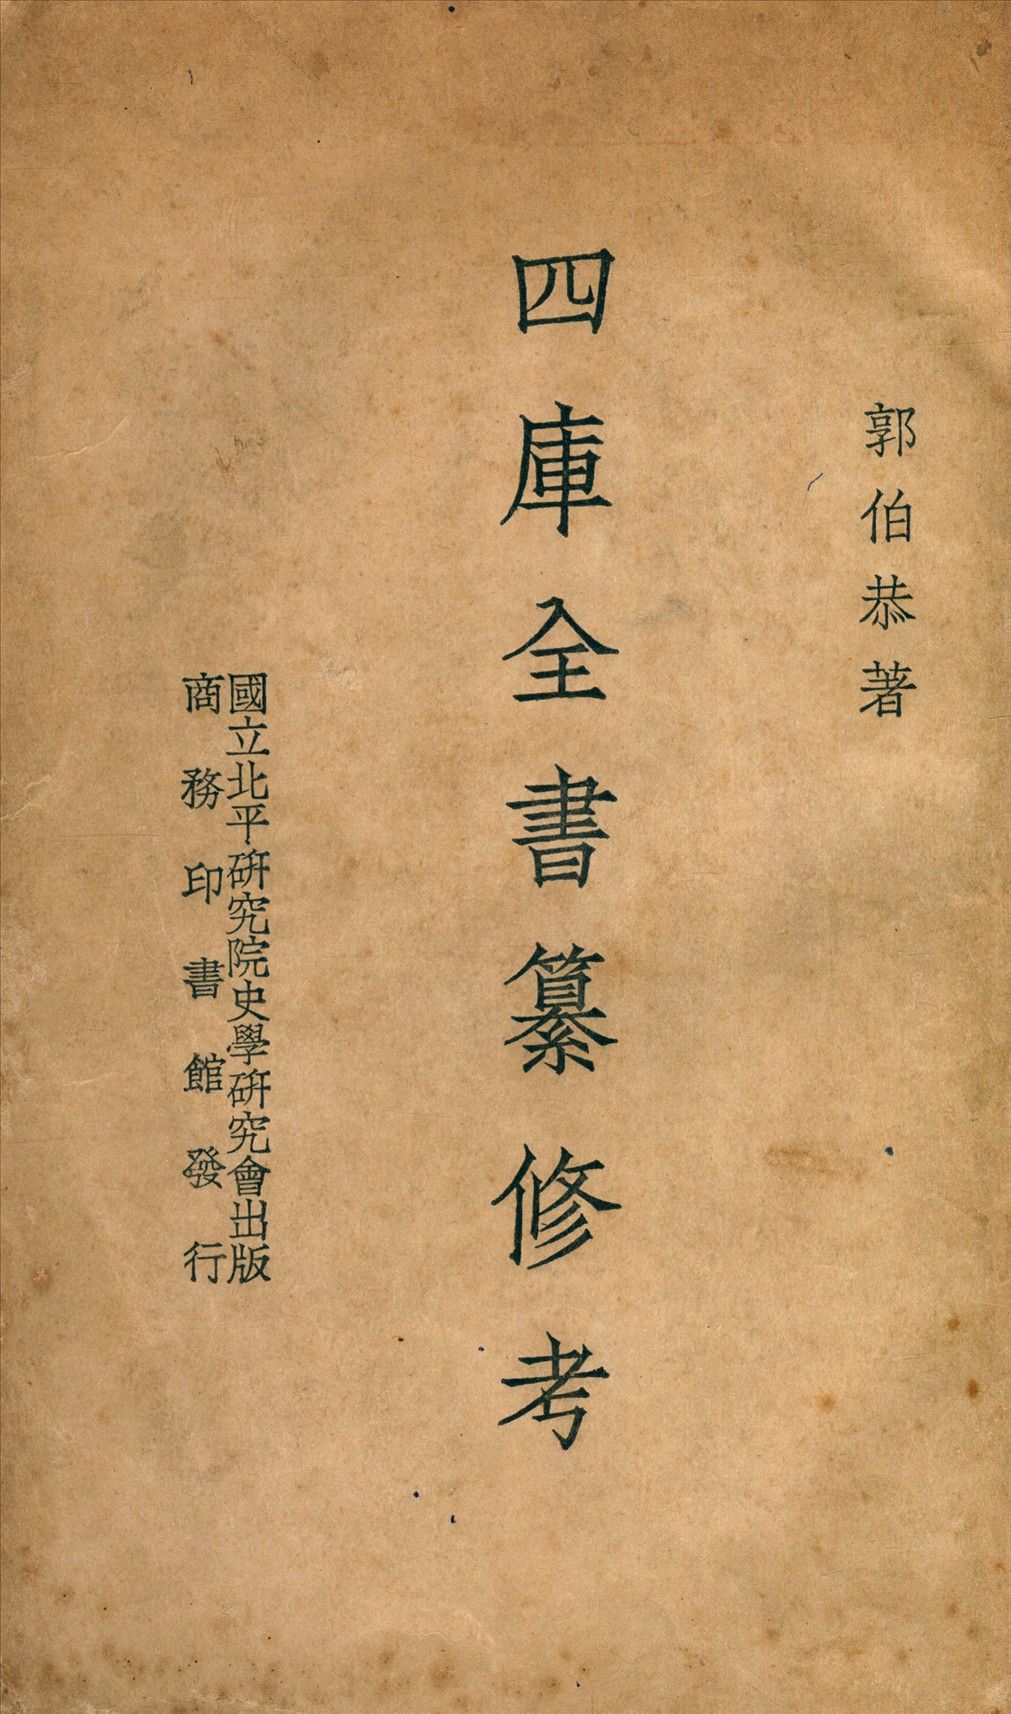 郭伯恭著
四庫全書纂修考
國立北平研究院史學研究會出版
商務印書館發行